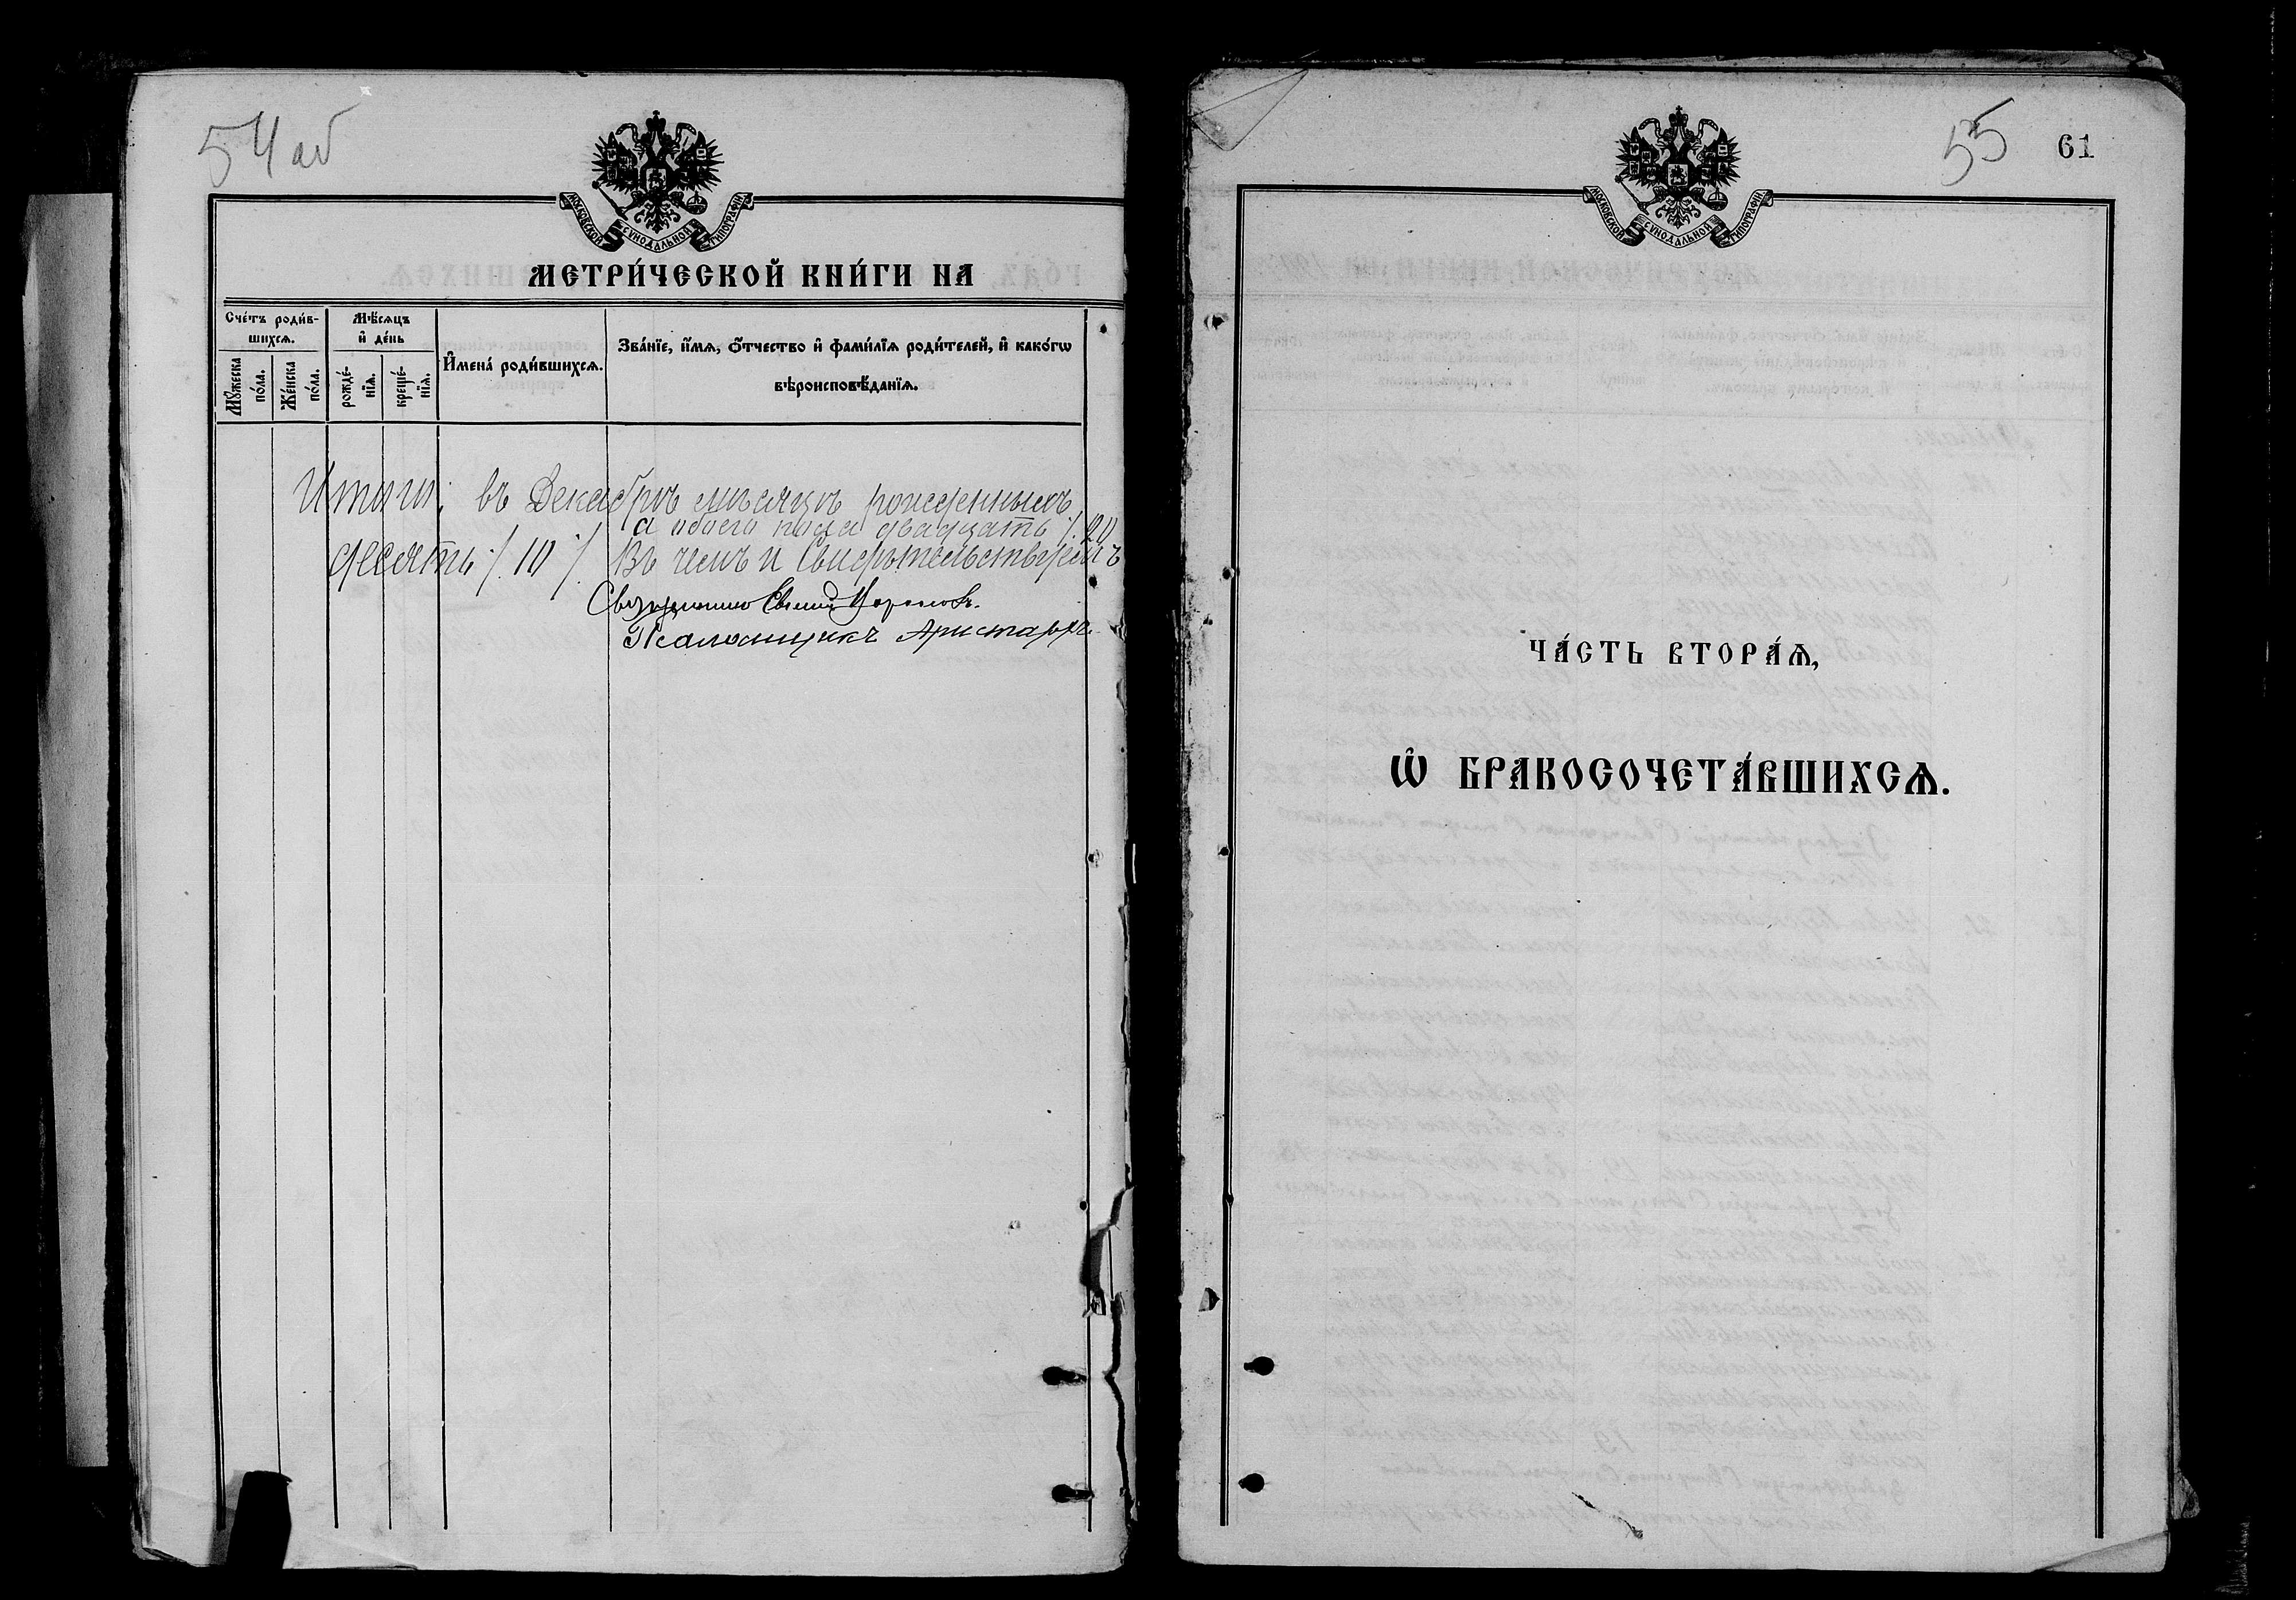 54 об
МОСКОВСКОЙ СѴНОДАЛЬНОЙ ТИПОГРАФІИ
МЕТРИ́ЧЕСКОЙ КНИ́ГИ НА
Сче́тъ роди́в-
шихсѧ.
Мѣ́сѧцъ
и҆ де́нь
И҆мена̀ роди́вшихсѧ.
Зва́нїе, и҆́мѧ, ѻ҆́тчество и҆ фами́лїѧ роди́телей, и҆ како́гѡ
вѣроисповѣ́данїѧ.
Мꙋ́жеска
по́ла.
Же́нска
по́ла.
рожде́-
нїѧ.
креще́-
нїѧ.
Итого: въ Декабрѣ мѣсяцѣ рожденныхъ
а обоего пола двадцать /. 20
десять ·/. 10 ·/. Въ чемъ и Свидѣтельствуемъ
Священникъ Евгеній
Псаломщикъ Аристархъ
55
61
МОСКОВСКОЙ СѴНОДАЛЬНОЙ ТИПОГРАФІИ
ЧА́СТЬ ВТОРА́Ѧ,
Ѡ҆ БРАКОСОЧЕТА́ВШИХСѦ.